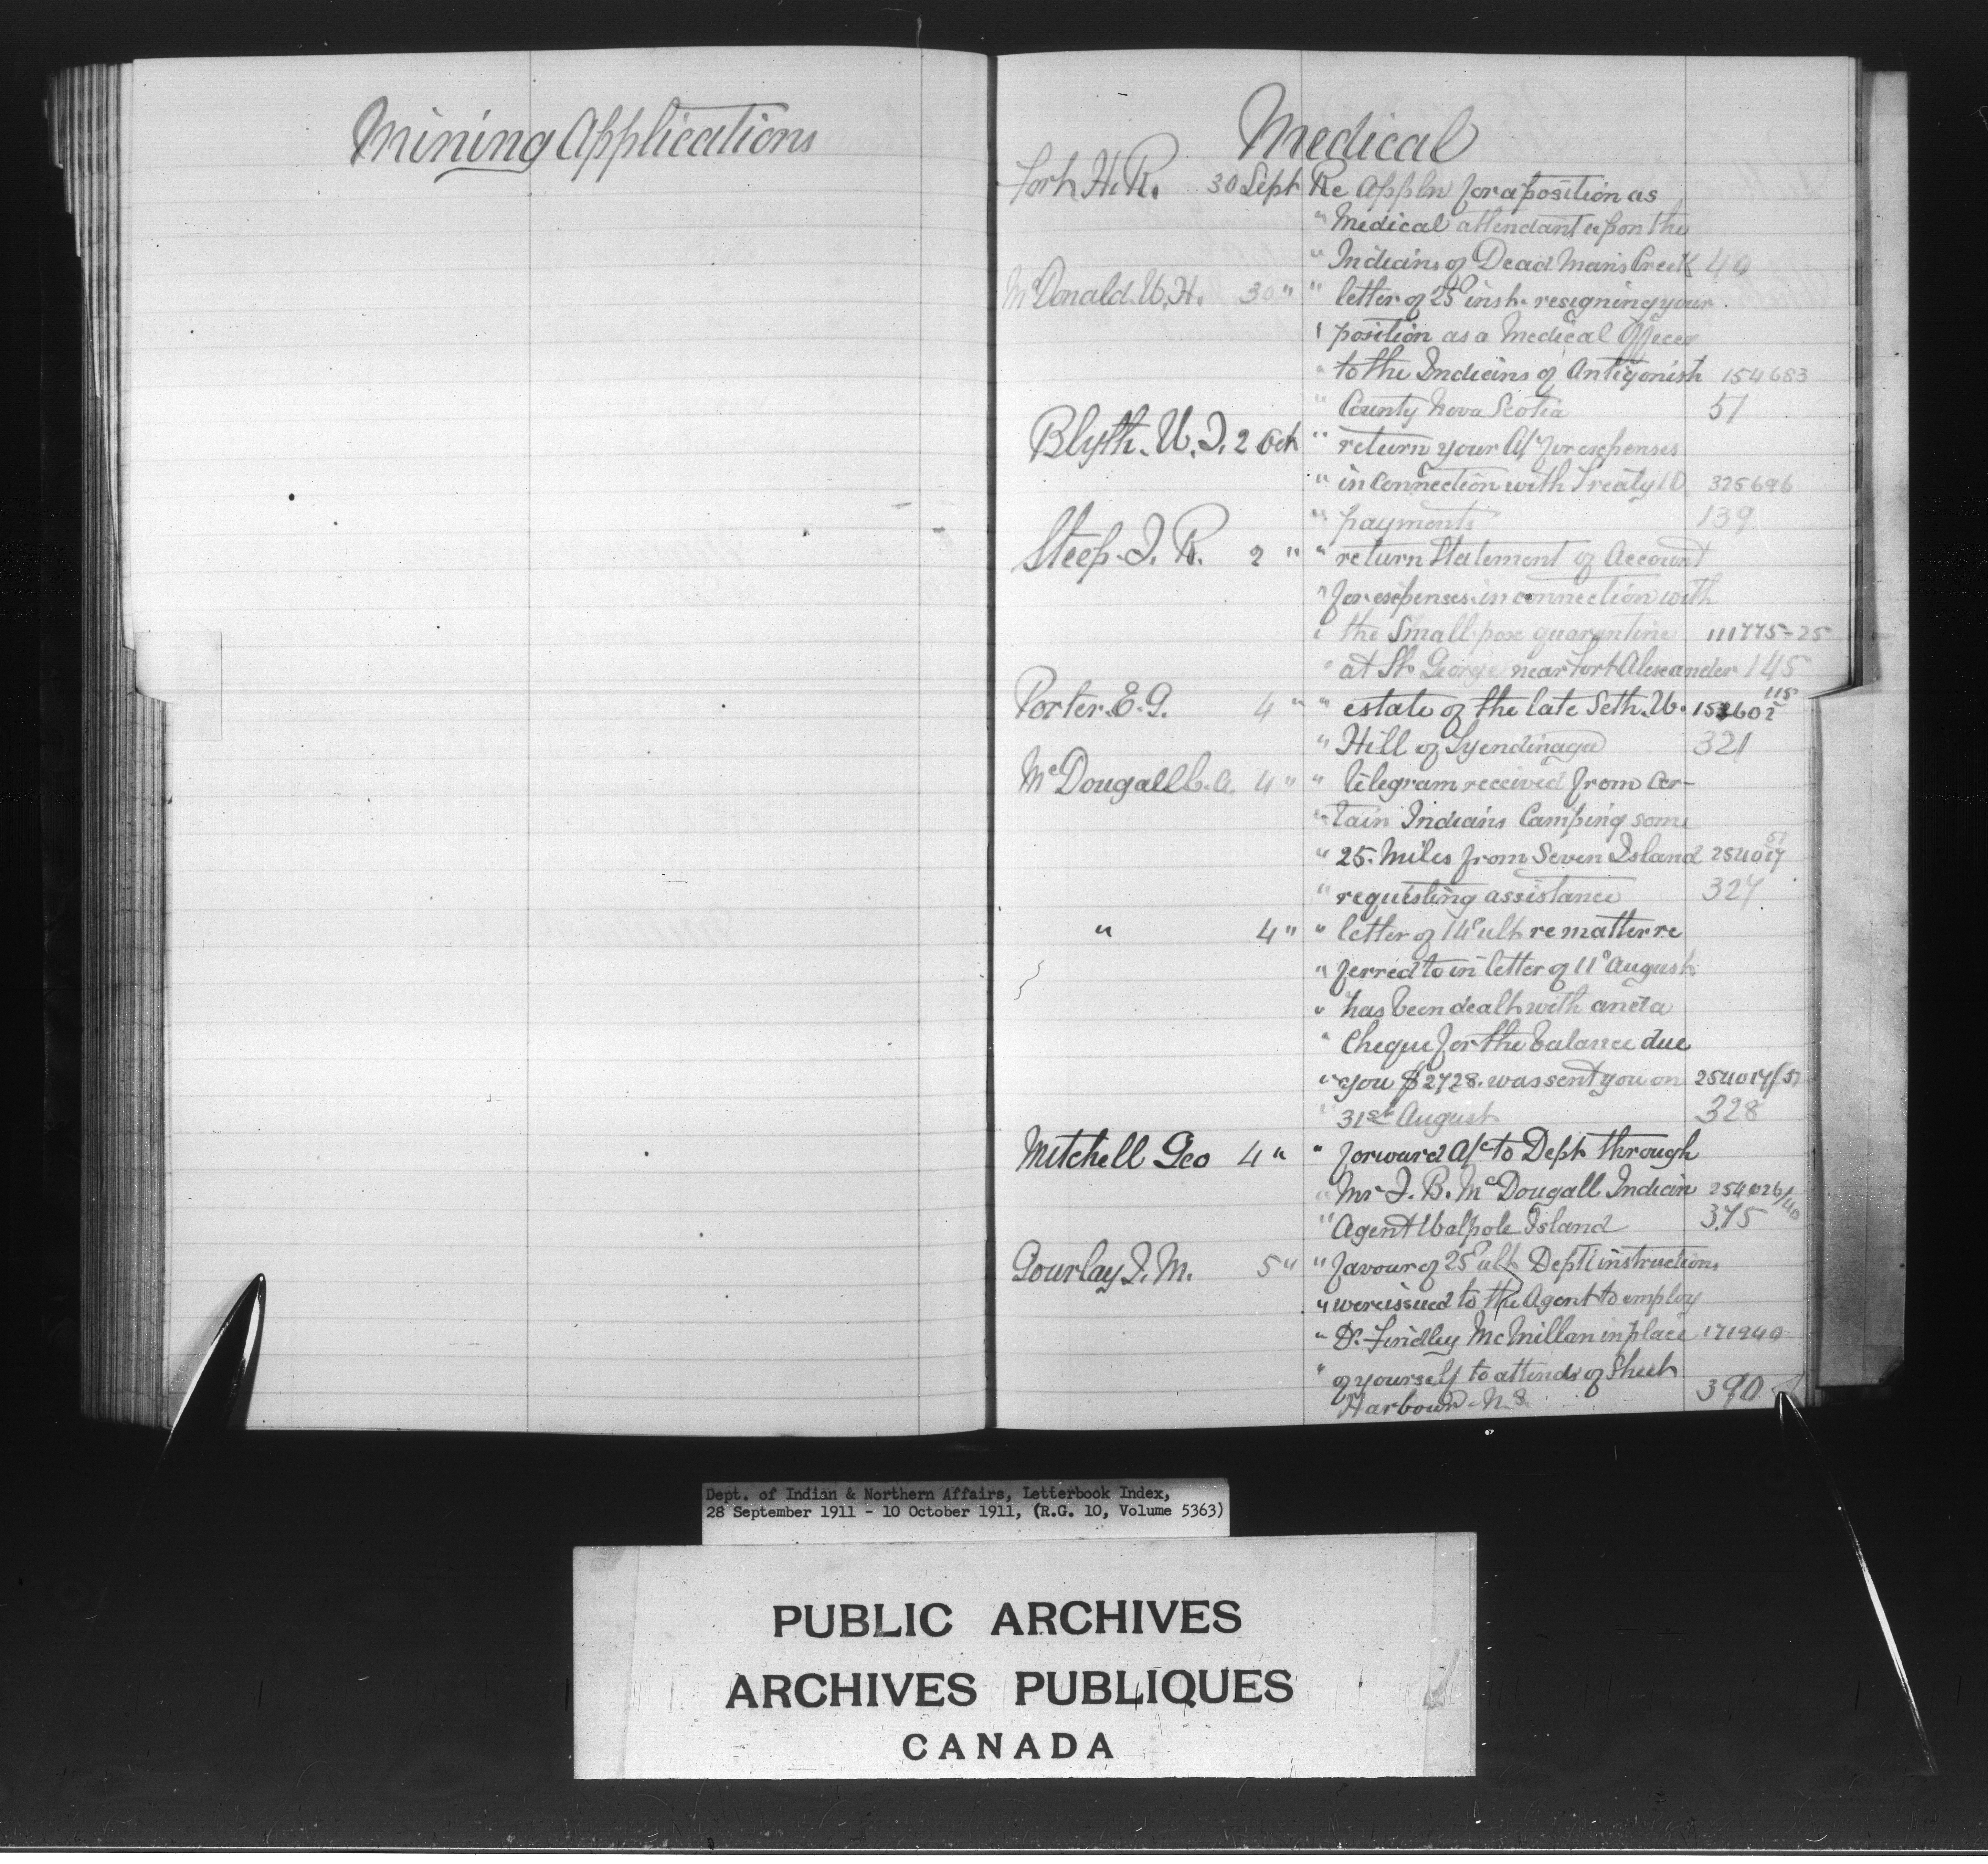 Mining Applications
Medical
Fort H. R. 30 Sept Re Appln for a position as
" Medical attendant upon the
" Indians of Dead Mans Creek 49
McDonald W. H. 30 " " letter of 25 inst. resigning your
" position as a Medical Officer
" to the Indians of Antigonish 154683
" County Nova Scotia 51
Blyth. W. J. 2 Oct " return your A/c for expenses
" in connection with Treaty 10 325696
" payments 139
Steep. J. R. 2 " " return Statement of Account
" for expenses in connection with
" the Small pox quarantine 111775-25
" at St. George near Fort Alexander 145
Porter. E. G. 4 " " estate of the late Seth. W.
" Hill of Tyendinaga 321
McDougall C. A. 4 " " telegram received from cer-
" tain Indians Camping some
" 25. Miles from Seven Island 254017 51
" requesting assistance 327
" 4 " " letter of 14 ult re matter re
" ferred to in letter of 11 August
" has been dealt with and a
" Cheque for the balance due
" you $2728. was sent you on 254017/51
" 31st August 328
Mitchell Geo 4 " " forward A/c to Dept through
" Mr J. B. McDougall Indian 254026/40
" Agent Walpole Island 375
Gourlay J. M. 5 " " favour of 25 ult Dept instructions
" were issued to the Agent to employ
" Dr. Findley McMillan in place 171949
" of yourself to attend of Sheet
Harbour. N. S. 390
Dept. of Indian & Northern Affairs, Letterbook Index,
28 September 1911 - 10 October 1911, (R.G. 10, Volume 5363)
PUBLIC ARCHIVES
ARCHIVES PUBLIQUES
CANADA